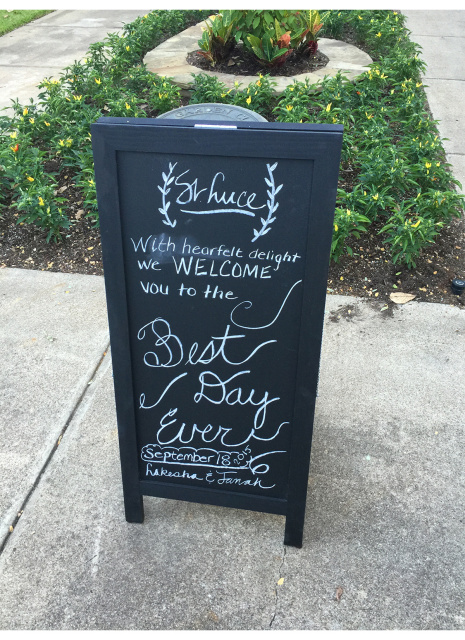 St Luce
With heartfelt delight
we WELCOME
you to the
Best
Day
Ever
September 18
Lakesha & Jamah